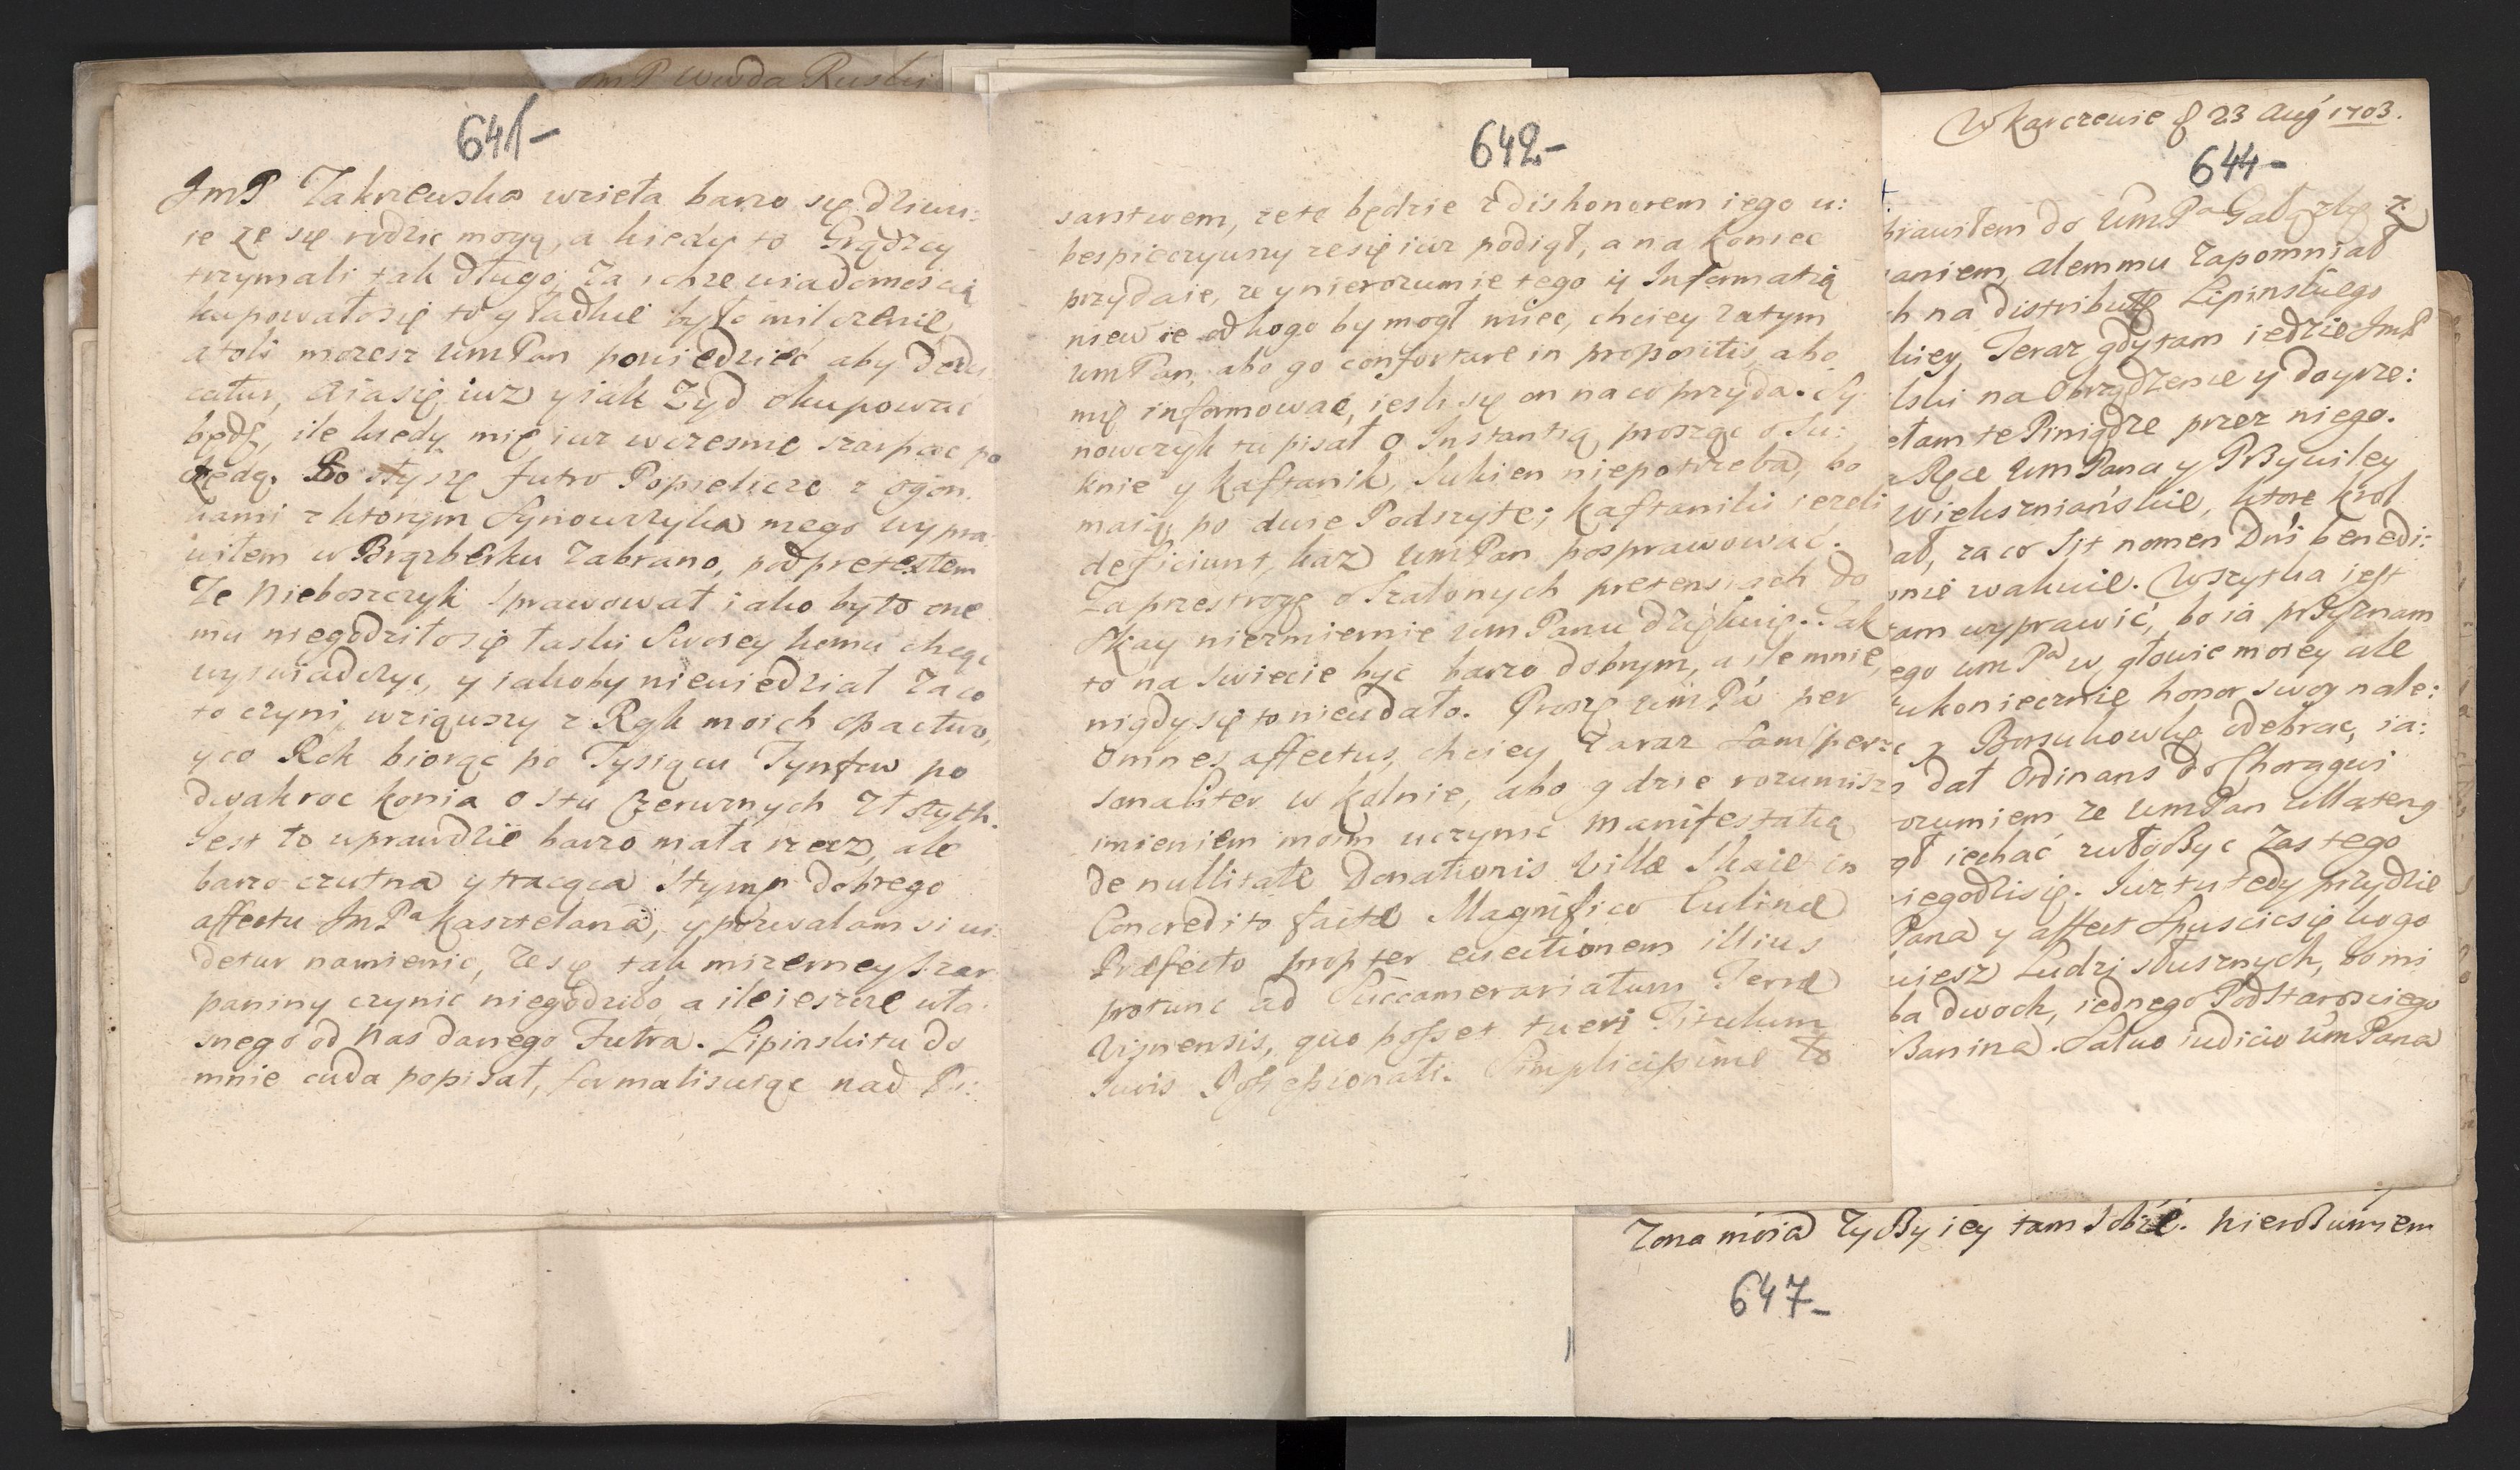 JmP Wwda Ruski
641-
JmP Zakrzewska wzieła barzo się dziwu:
ie że się rodzic mogą, a kiedy to Grądzcy
trzymali tak długo, za ich ze wiadomoscią
kupowało się to y ładnie było milczenie
atoli mozesz UmPan powiedziec aby
catur, a ia się iuz y iak Zyd okupować
będę, ile kiedy mię iuz wczesnie szarpac po
Bo słyszę futro Popielicze z ogon
kami z ktorym Synowczyka mego wypra
wiłem w Brązberku zabrano, pod pretextem
Ze Nieboszczyk sprawował iako było one
mu niegodziło się łaski Swoiey komu chcąc
wyswiadczyc, y iakoby niewiedział za co
to czyni, wziąwszy z Rąk moich opactwo,
y co Rok biorąc po Tysiącu Tynfow po
dwakroc konia o stu Czerwonych Złotych.
Jest to wprawdzie barzo mała rzecz, ale
barzo czutna y tracąca Stymp dobrego
affectu JmPa Kasztelana, y pozwalam si vi:
detur namienic, ze się tak mizerney szar
paniny czynic niegodziło, a ile ieszcze wła
snego od Nas danego Futra. Lipinski tu do
mnie cuda popisał, formalisuiąc nad Pi:
642-
sarstwem, ze to będzie z dishonorem iego u:
bespieczywszy ze się iuz podiął, a na koniec
przydaie, ze y nierozumie tego ii Informatią
niewie od kogo by mogł miec, chciey zatym
UmPan, abo go confortare in propositis, abo
mię informowac, iesli się on na co przyda. Sy:
nowczyk tu pisał o Instantią, prosząc o Su:
knie y Kaftanik, Sukien niepotrzeba, bo
maią po dwie Podszyte; kaftaniki iezeli
deficiunt, kaz UmPan posprawować.
Za przestrogę o Szalonych pretensiach do
Skay niezmiernie UmPanu dziękuię. Tak
to na swiecie byc barzo dobrym, a ile mnie,
nigdy się to nieudało. Proszę UmPa per
omnes affectus, chciey zaraz sam per:
sonaliter w Kolnie, abo gdzie rozumisz
imieniem moim uczynic manifestatią
de nullitate Donationis Villæ Skaie in
Concredito factæ Magnifico Culinæ
Præfecto propter evectionem illius
protunc ad Succamerariatum Terræ
Visnensis, quo posset tueri Titulum
Iuris Possessionati. Simplicissime to
W Karczewie d 23 Aug 1703.
644-
prawiłem do UmPa Gałązkę z
aniem, alem mu zapomniał
ch na distributę Lipinskiego
kiey. Teraz gdy tam iedzie JmP
lski na Obrządzenie y doyrze:
łam te Piniądze przez niego.
Ręce UmPana y Przywiley
Wiekszniańskie, ktore krol
ał, za co Sit nomen Dni benedi:
nie wakuie. Wszytka iest
am wyprawić, bo ia przyznam
ego UmPa w głowie moiey ale
koniecznie honor swoy nale:
z Borsukowskę odebrac, ia:
dał Ordinans do Chorągwi
rozumiem ze UmPan
iechać Zas tego
niegodzi się. Iuz tu tedy przydzie
Pana y affect Spuscic się kogo
uiesz Ludzi słusznych, bo mi
ba dwoch, iednego Podstarosciego
Banina. Salvo iudicio UmPana
Zona moia
iey tam
647-